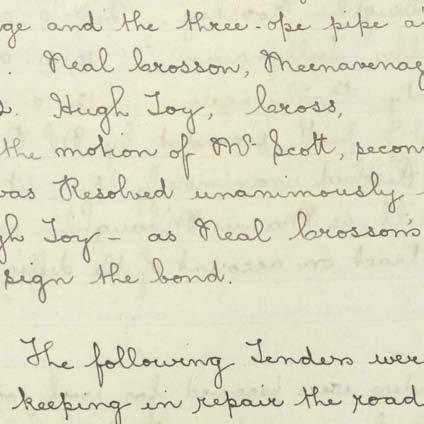 ge and the three-ope pipe a
. Neal Crosson, Meenavenag
2. Hugh Toy, Cross,
the motion of Mr Scott, secon
was Resolved unanimously -
gh Toy - as Neal Crosson's
sign the bond.
The following Tenders wer
keeping in repair the road